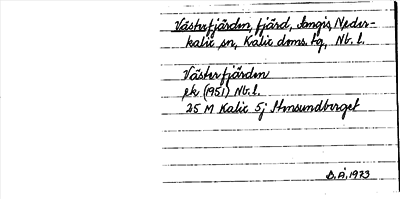 Västerfjärden, fjärd, Sangis, Neder-
kalix sn, Kalix doms. tg, Nb. l.
Västerfjärden
ek (1951) Nb. l.
25 M Kalix 5j Stensundberget
B. Å. 1973